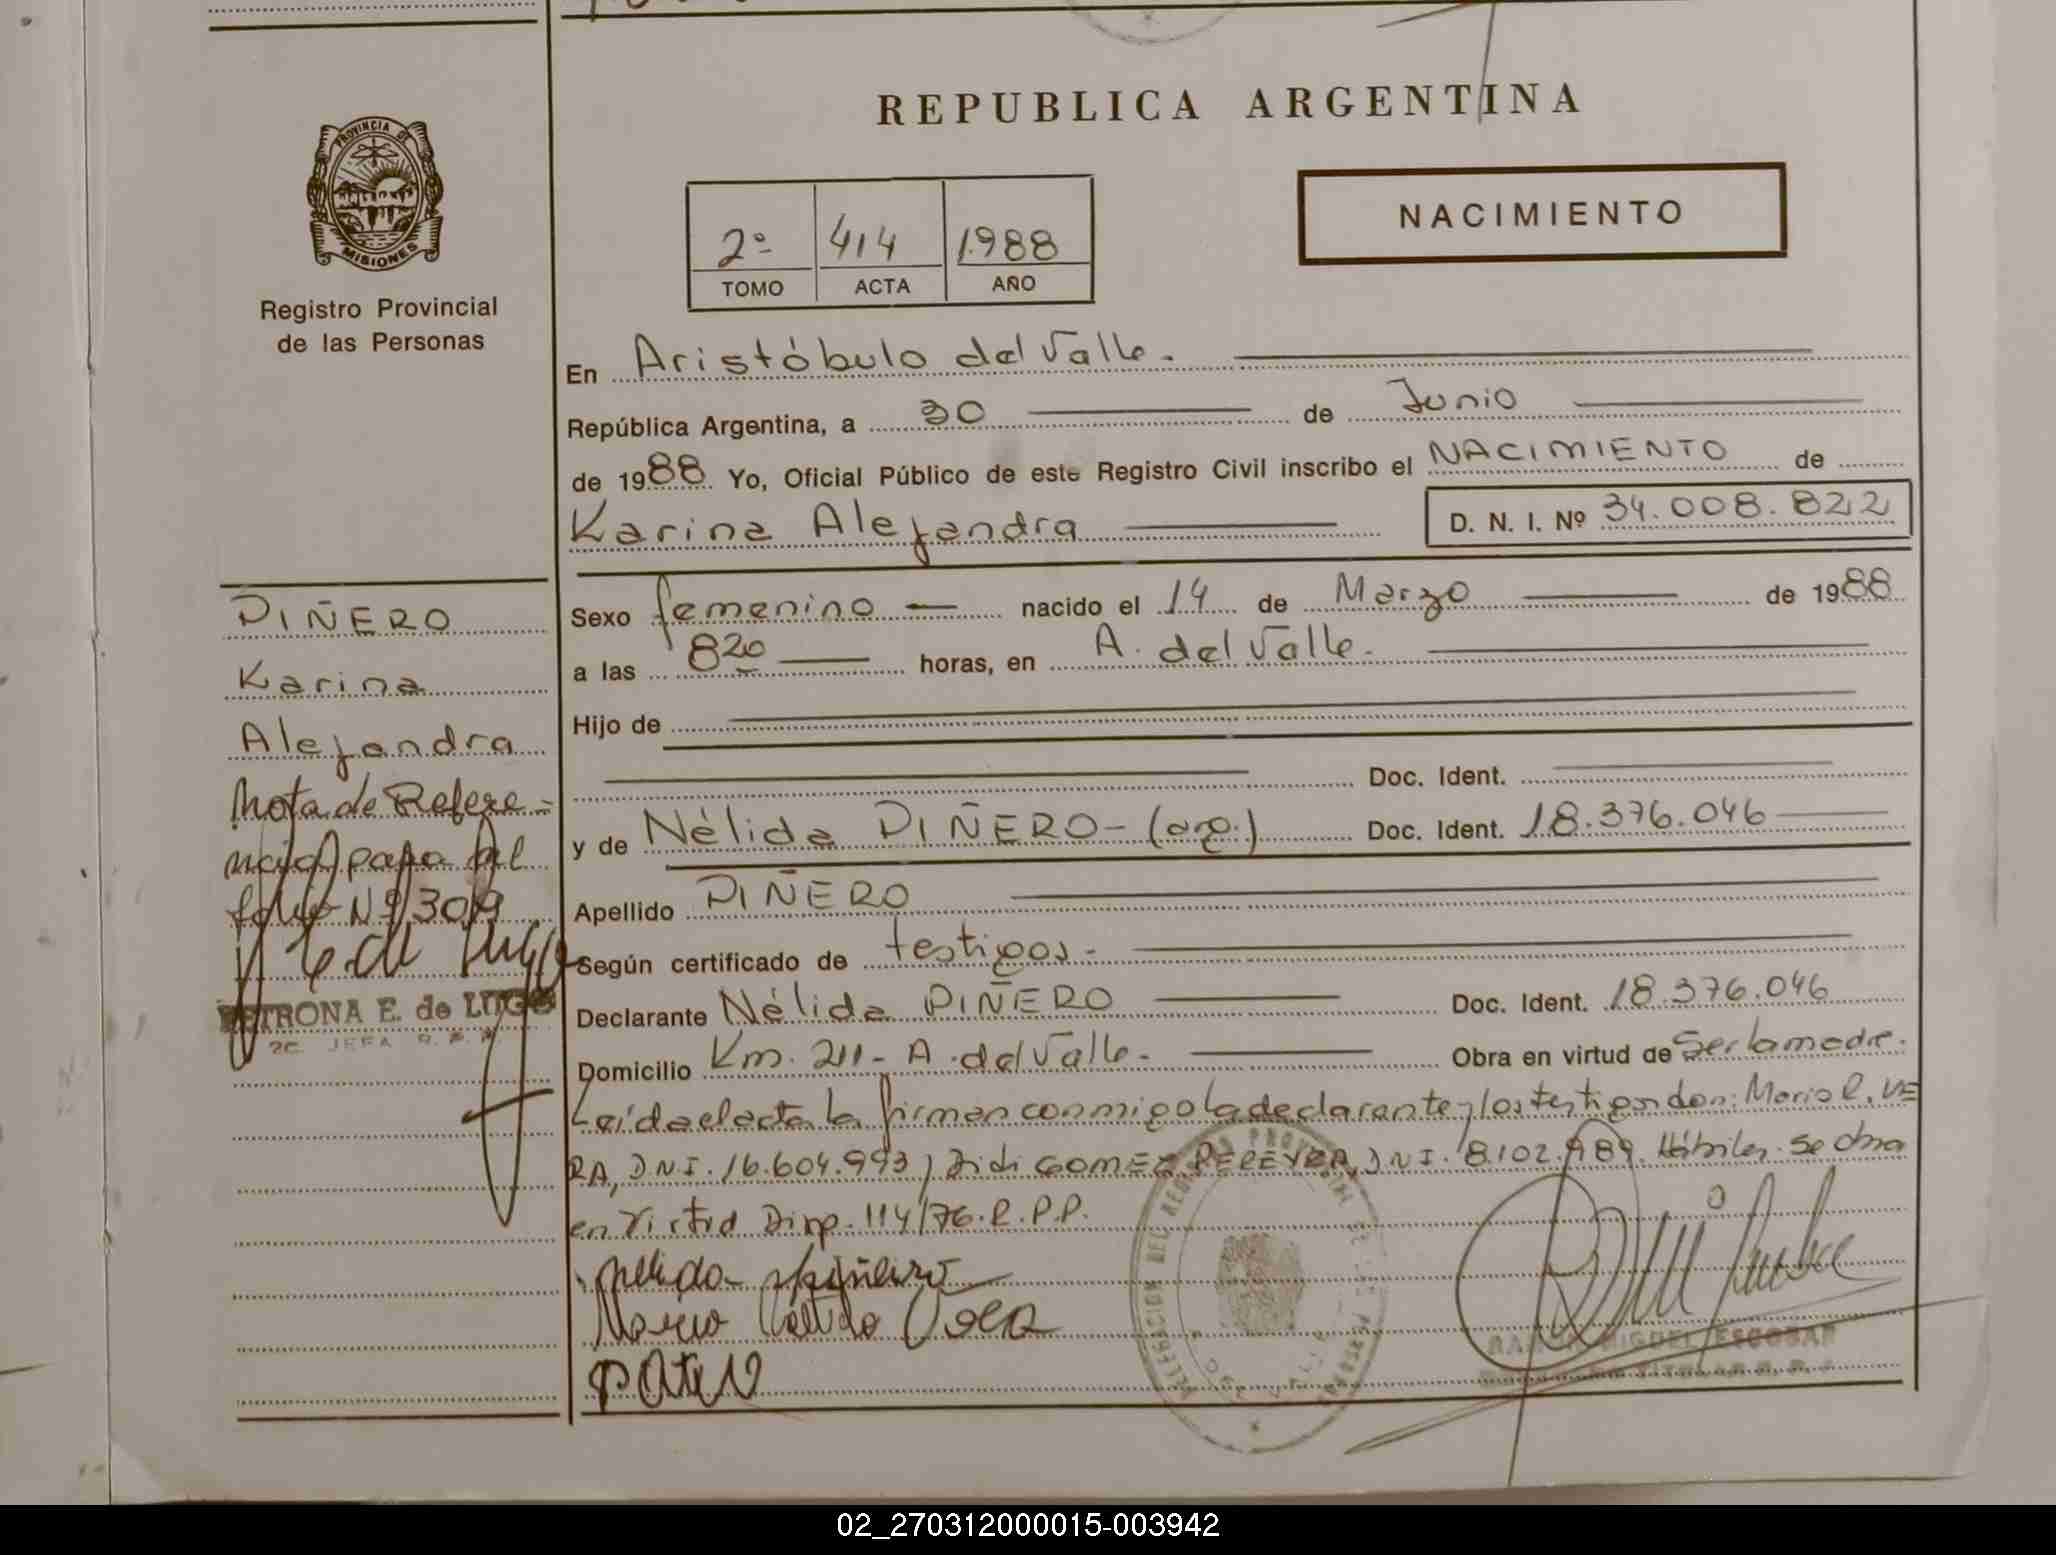 REPUBLICA ARGENTINA
PROVINCIA DE
MISIONES
Registro Provincial
de las Personas
NACIMIENTO
2º 414 1988
TOMO ACTA AÑO
En Aristóbulo del Valle.
República Argentina, a 30 de Junio
de 1988 Yo, Oficial Público de este Registro Civil inscribo el NACIMIENTO de
Karina Alejandra D. N. I. Nº 34.008.822
Sexo femenino nacido el 14 de Marzo de 1988
a las 8 20 horas, en A. del Valle.
Hijo de
Doc. Ident.
y de Nélida PIÑERO - (arg.) Doc. Ident. 18.376.046
Apellido PIÑERO
Según certificado de testigos.-
Declarante Nélida PIÑERO Doc. Ident. 18.376.046
Domicilio Km. 211 - A. del Valle. Obra en virtud de Ser la madre.
Leída el acta la firman conmigo la declarante y los testigos don: Mario R. VE
RA, D N I. 16.604.993, Didi GOMEZ PEREYRA, D N I. 8.102.989. Hábiles. Se obra
en virtud Disp. 114/76. R. P. P.
Mario Vera
PIÑERO
Karina
Alejandra
Nota de Refere=
ncia papa al
folio Nº 309
PETRONA E. de LUGO
JEFA R. P. P.
DELEGACION DEL REGISTRO PROVINCIAL DE LAS PERSONAS
MIGUEL ESCOBAR
TITULAR R. P.
02_270312000015-003942